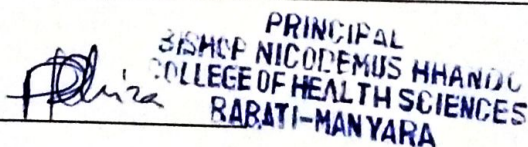 PRINCIPAL
BISHOP NICODEMUS HHANDO
COLLEGE OF HEALTH SCIENCES
BABATI-MANYARA